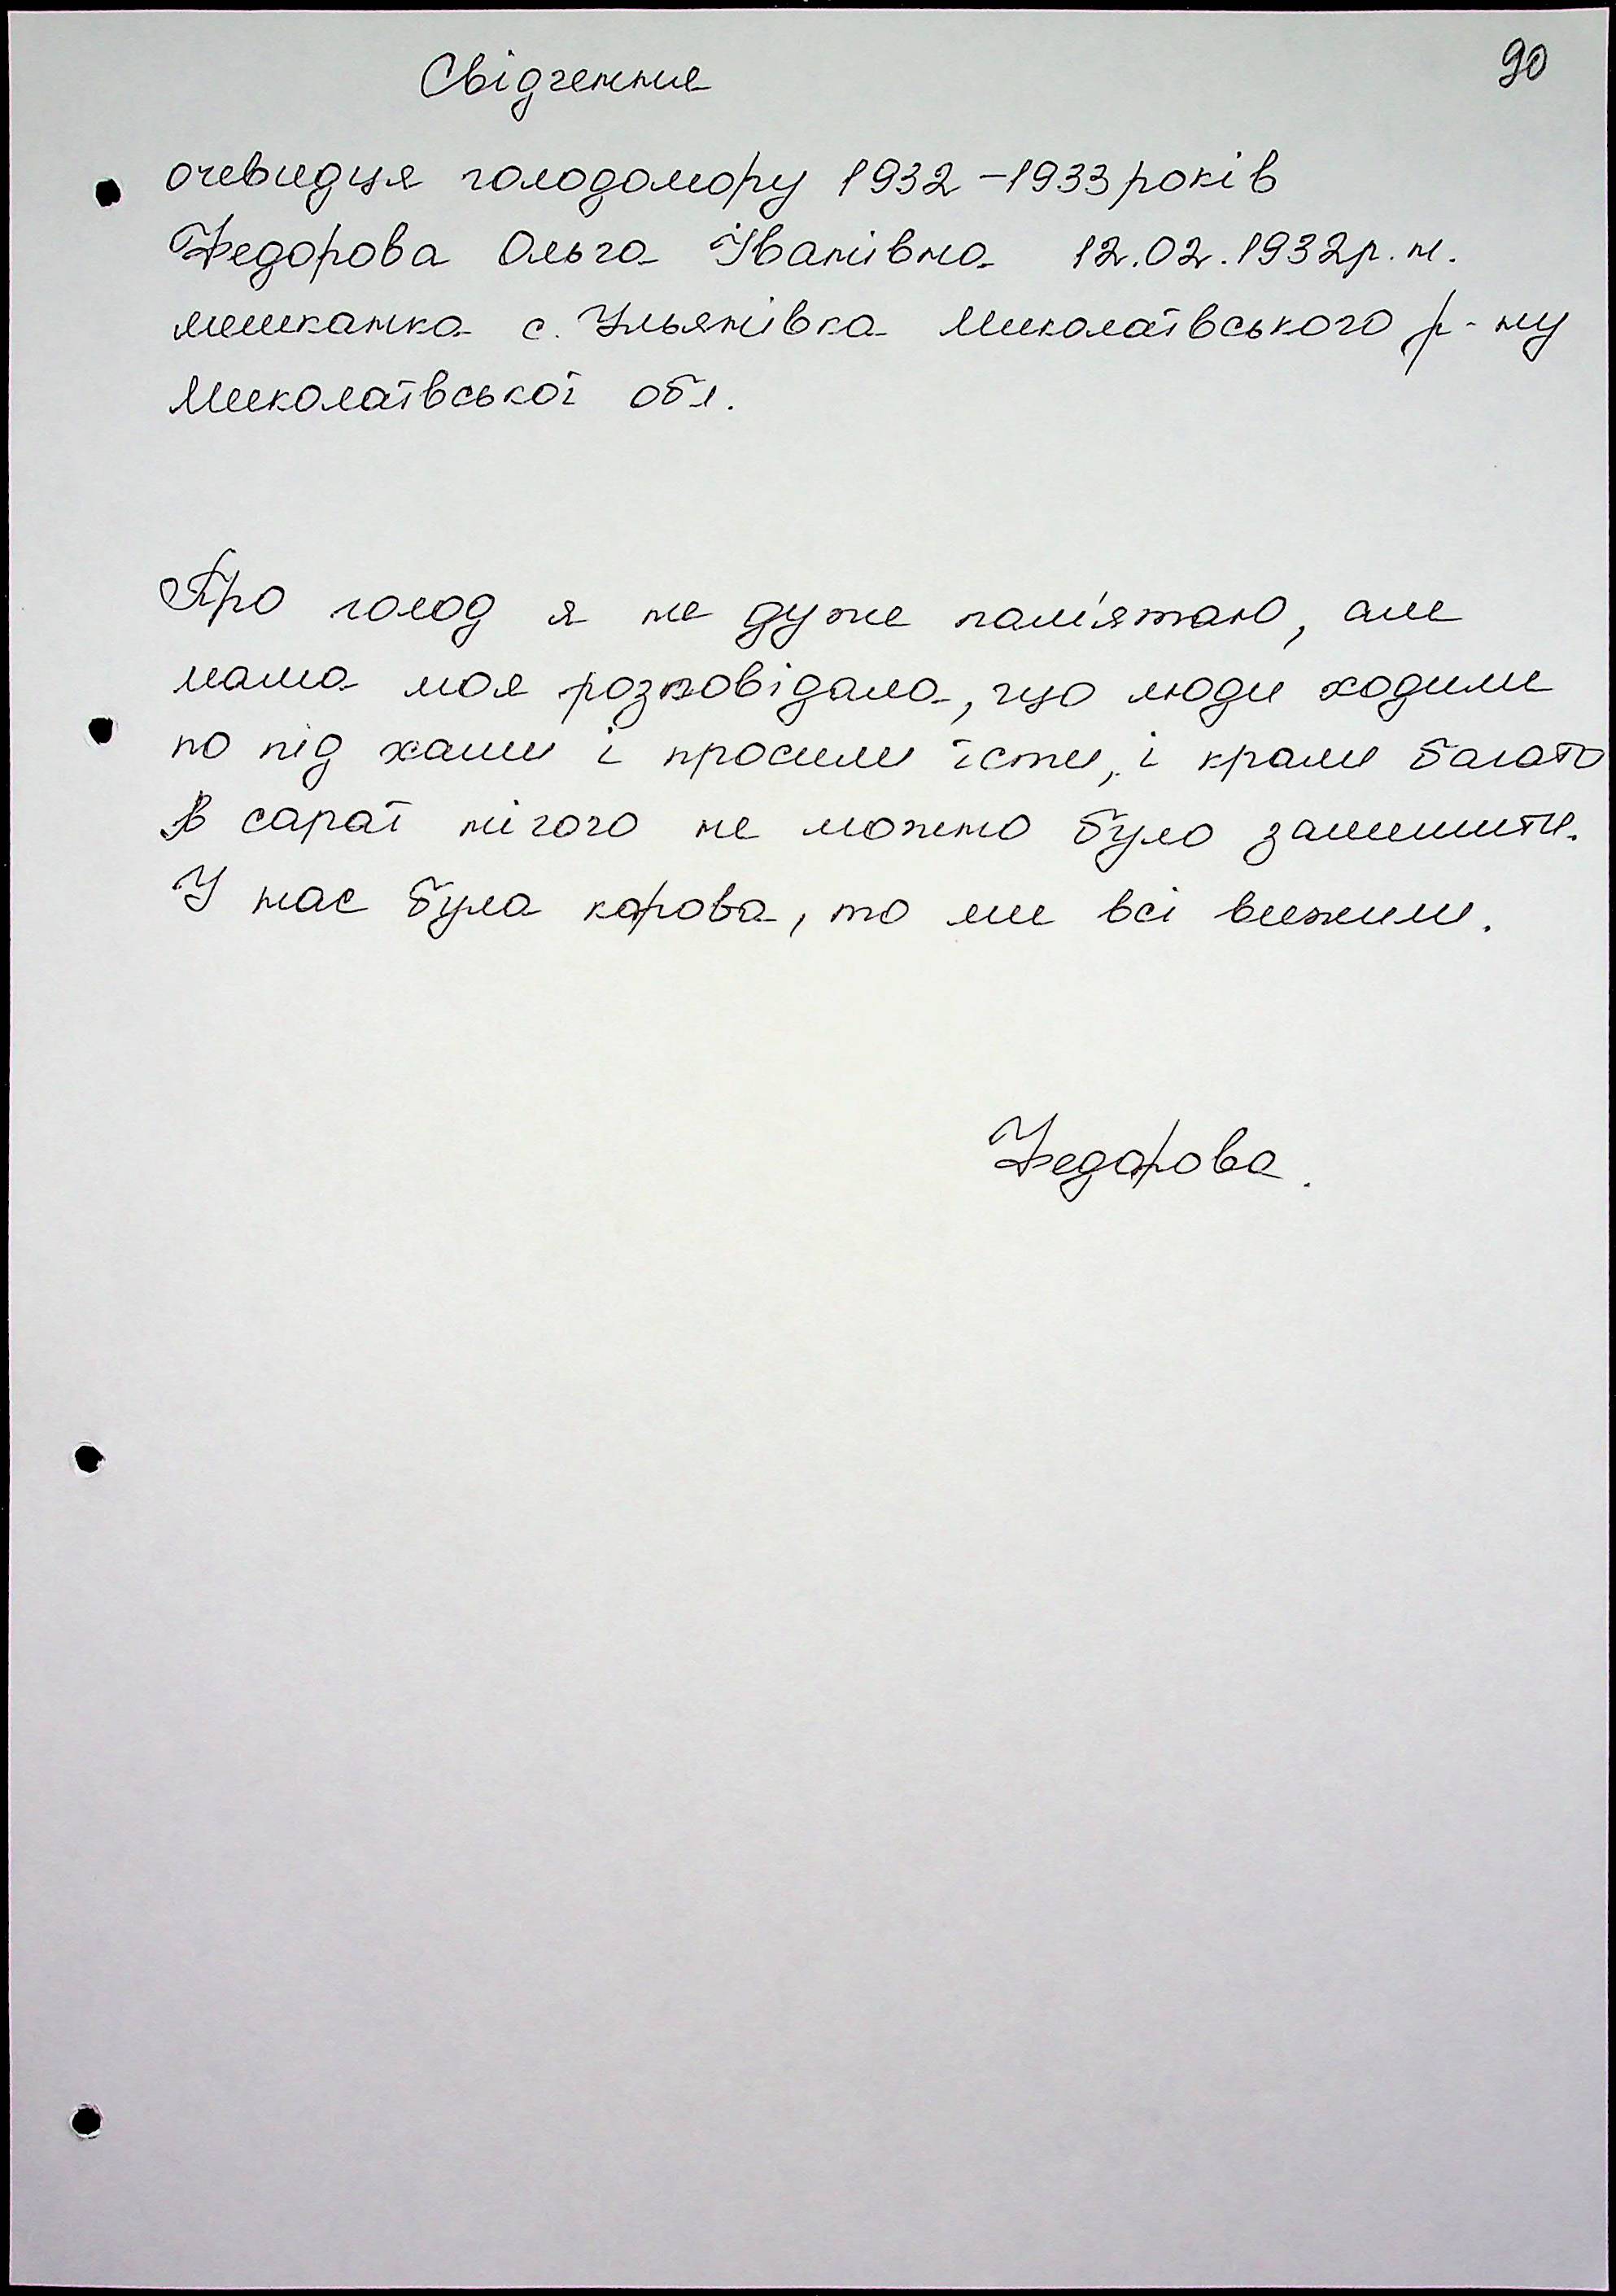 90
Свідчення
очевидця голодомору 1932-1933 років
Федорова Ольга Іванівна 12.02.1932р.н.
мешканка с. Ульянівка Миколаївського р-ну
Миколаївської обл.
Про голод я не дуже пам'ятаю, але
мама моя розповідала, що люди ходили
по під хати і просили їсти, і крали багато
В сараї нічого не можно було залишити.
У нас була корова, то ми всі вижили.
Федорова.